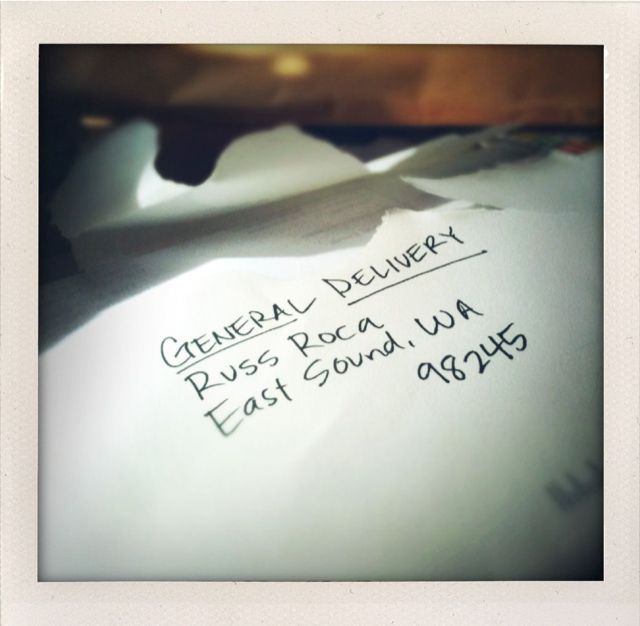 GENERAL DELIVERY
Russ Roca
East Sound, WA
98245